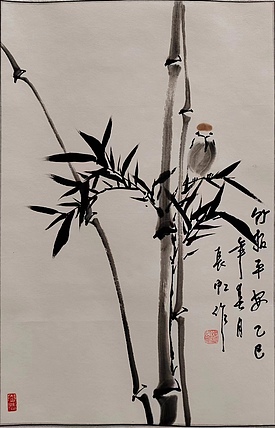 竹报平安乙巳
年春月
長虹作